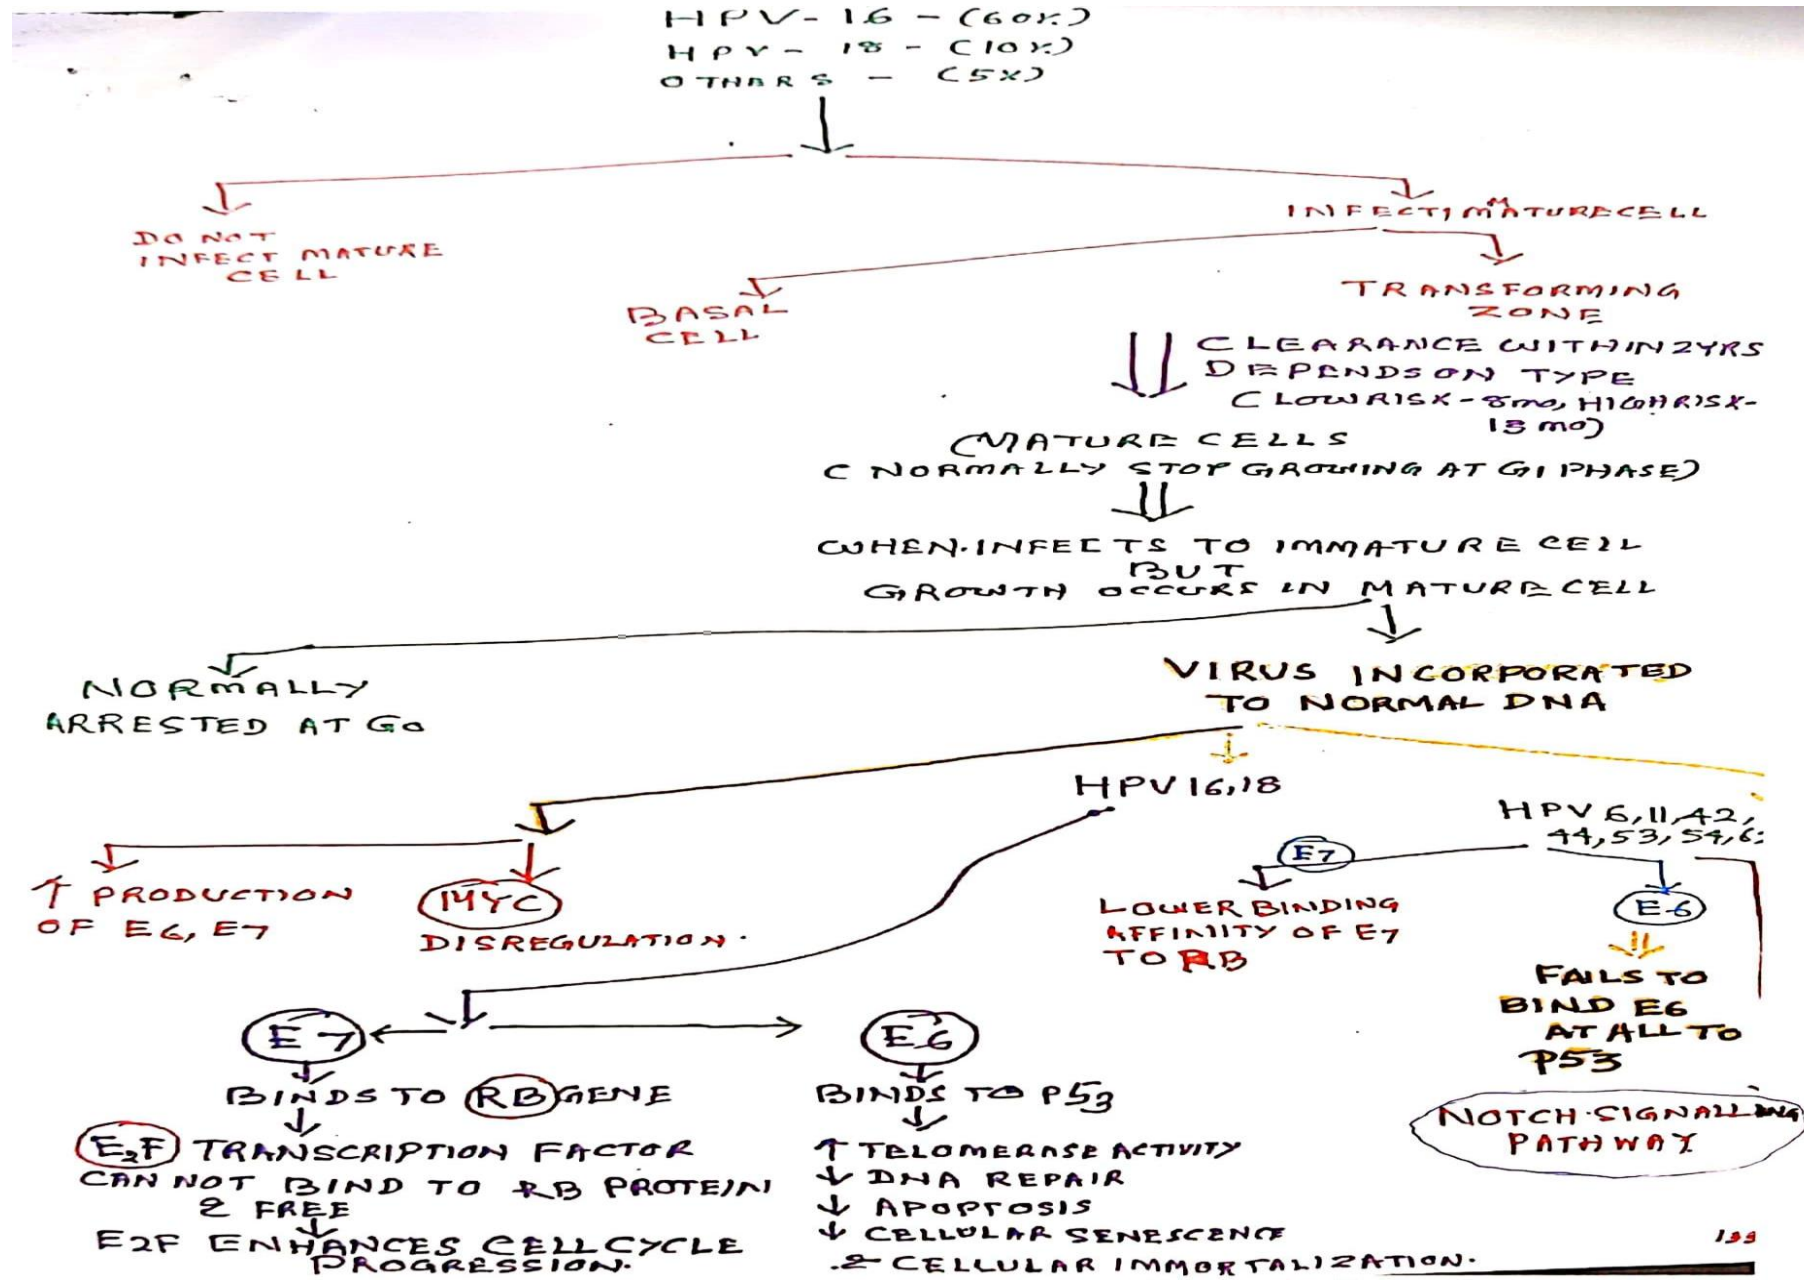 HPV-16 - (60%)
HPV - 18 - (10%)
OTHERS - (5%)
DO NOT
INFECT MATURE
CELL
INFECT IMMATURE CELL
BASAL
CELL
TRANSFORMING
ZONE
CLEARANCE WITHIN 2YRS
DEPENDS ON TYPE
(LOW RISK - 8mo, HIGH RISK-
13 mo)
MATURE CELLS
(NORMALLY STOP GROWING AT G1 PHASE)
WHEN INFECTS TO IMMATURE CELL
BUT
GROWTH OCCURS IN MATURE CELL
NORMALLY
ARRESTED AT G0
VIRUS INCORPORATED
TO NORMAL DNA
HPV 16,18
HPV 6,11,42,
44,53,54,6
↑ PRODUCTION
OF E6, E7
MYC
DISREGULATION.
E7
LOWER BINDING
AFFINITY OF E7
TO RB
E6
FAILS TO
BIND E6
AT ALL TO
P53
NOTCH SIGNALLING
PATHWAY
E7
BINDS TO RB GENE
E2F TRANSCRIPTION FACTOR
CAN NOT BIND TO RB PROTEIN
& FREE
E2F ENHANCES CELL CYCLE
PROGRESSION.
E6
BINDS TO P53
↑ TELOMERASE ACTIVITY
↓ DNA REPAIR
↓ APOPTOSIS
↓ CELLULAR SENESCENCE
& CELLULAR IMMORTALIZATION.